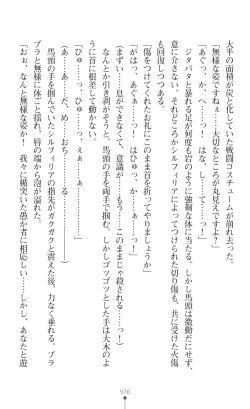 大半の面積が炭と化していた戦闘コスチュームが崩れ去った。
「無様な姿ですねぇ……大切なところが丸見えですよ？」
「あぐっ、か、へ……っ！　はな、し……て……っ！」
ジタバタと暴れる足が何度も岩のように強靭な体に当たる。しかし馬頭は微塵も
意に介さない。それどころかシルフィリアによってつけられた切り傷も、共に受けた火傷
も回復しつつある。
「傷をつけてくれたお礼にこのまま首を折ってやりましょうか」
「がはっ、あぐぅ……っ！　はひゅっ、か、ぁ……っ！」
（まずい……！　息ができなくて、意識が……もう……このままじゃ殺される……っ！）
なんとか引き剥がそうと、馬頭の手を両手で掴む。しかしゴツゴツとした手は大木のよ
うに首に根差して動かない。
「ひゅ……っ、ひゅっ、ぇぁ……ぁ……」
（あ……あ……だ、め……おち……る……）
馬頭の手を掴んでいたシルフィリアの指先がガクガクと震えた後、力なく垂れる。ブラ
ブラと無様に体ごと揺れ、唇の端から泡が溢れた。
「おぉ、なんと無様な姿か！　我々に楯突いた愚か者に相応しい……しかし、あなたと遊
576